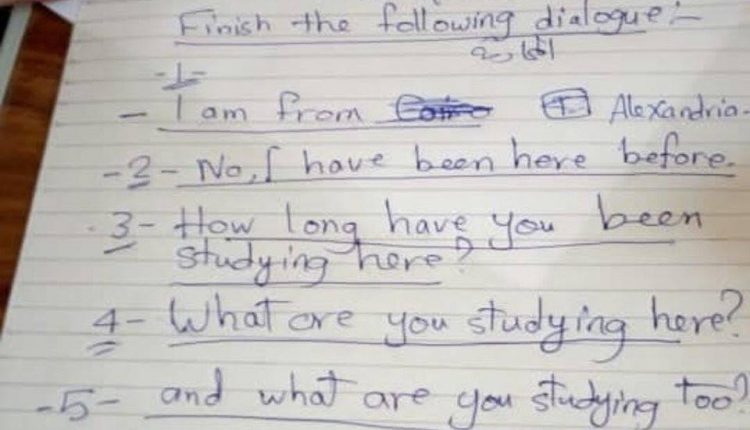 Finish the following dialogue:-
-1-
- I am from Alexandria.
-2- No, I have been here before.
3- How long have you been
studying here?
4- What are you studying here?
-5- and what are you studying too?